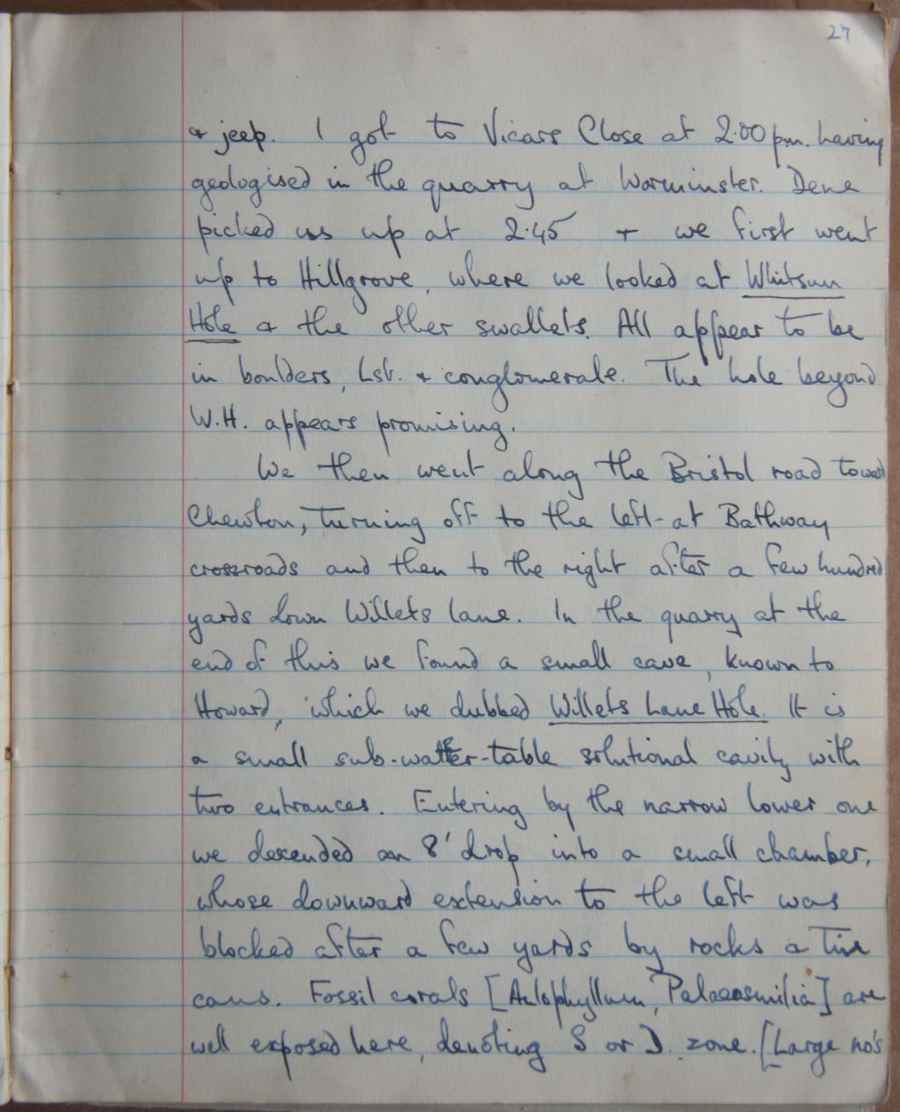 27
& jeep. I got to Vicars Close at 2.00 pm. having
geologised in the quarry at Warminster. Dene
picked us up at 2.45 + we first went
up to Hillgrove, where we looked at Whitsun
Hole & the other swallets. All appear to be
in boulders, Lst. & conglomerate. The hole beyond
W.H. appears promising.
We then went along the Bristol road toward
Chewton, turning off to the left at Bathway
crossroads and then to the right after a few hundred
yards down Willets Lane. In the quarry at the
end of this we found a small cave, known to
Howard, which we dubbed Willets Lane Hole. It is
a small sub-water-table solutional cavity with
two entrances. Entering by the narrow lower one
we descended an 8' drop into a small chamber,
whose downward extension to the left was
blocked after a few yards by rocks & tin
cans. Fossil corals [Aulophyllum, Palaeosmilia] are
well exposed here, denoting S or D zone. [Large no's